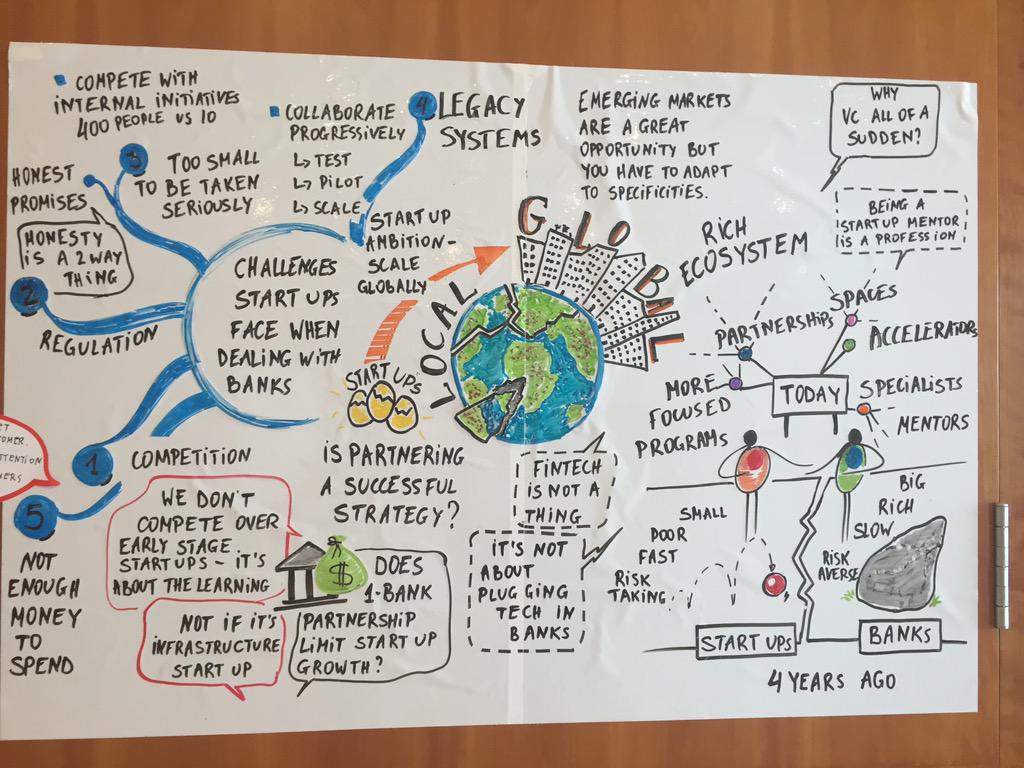 COMPETE WITH
INTERNAL INITIATIVES
400 PEOPLE VS 10
COLLABORATE
PROGRESSIVELY
↳ TEST
↳ PILOT
↳ SCALE
4
LEGACY
SYSTEMS
3
TOO SMALL
TO BE TAKEN
SERIOUSLY
HONEST
PROMISES
HONESTY
IS A 2 WAY
THING
2
REGULATION
CHALLENGES
START UPS
FACE WHEN
DEALING WITH
BANKS
1
COMPETITION
5
NOT
ENOUGH
MONEY
TO
SPEND
START UP
AMBITION-
SCALE
GLOBALLY
START UPS
LOCAL
GLOBAL
EMERGING MARKETS
ARE A GREAT
OPPORTUNITY BUT
YOU HAVE TO ADAPT
TO SPECIFICITIES.
IS PARTNERING
A SUCCESSFUL
STRATEGY?
WE DON'T
COMPETE OVER
EARLY STAGE
STARTUPS - IT'S
ABOUT THE LEARNING
NOT IF IT'S
INFRASTRUCTURE
START UP
$
DOES
1-BANK
PARTNERSHIP
LIMIT START UP
GROWTH?
FINTECH
IS NOT A
THING
IT'S NOT
ABOUT
PLUGGING
TECH IN
BANKS
WHY
VC ALL OF A
SUDDEN?
BEING A
STARTUP MENTOR
IS A PROFESSION
RICH
ECOSYSTEM
PARTNERSHIPS
SPACES
ACCELERATORS
MORE
FOCUSED
PROGRAMS
TODAY
SPECIALISTS
MENTORS
SMALL
POOR
FAST
RISK
TAKING
BIG
RICH
SLOW
RISK
AVERSE
START UPS
BANKS
4 YEARS AGO